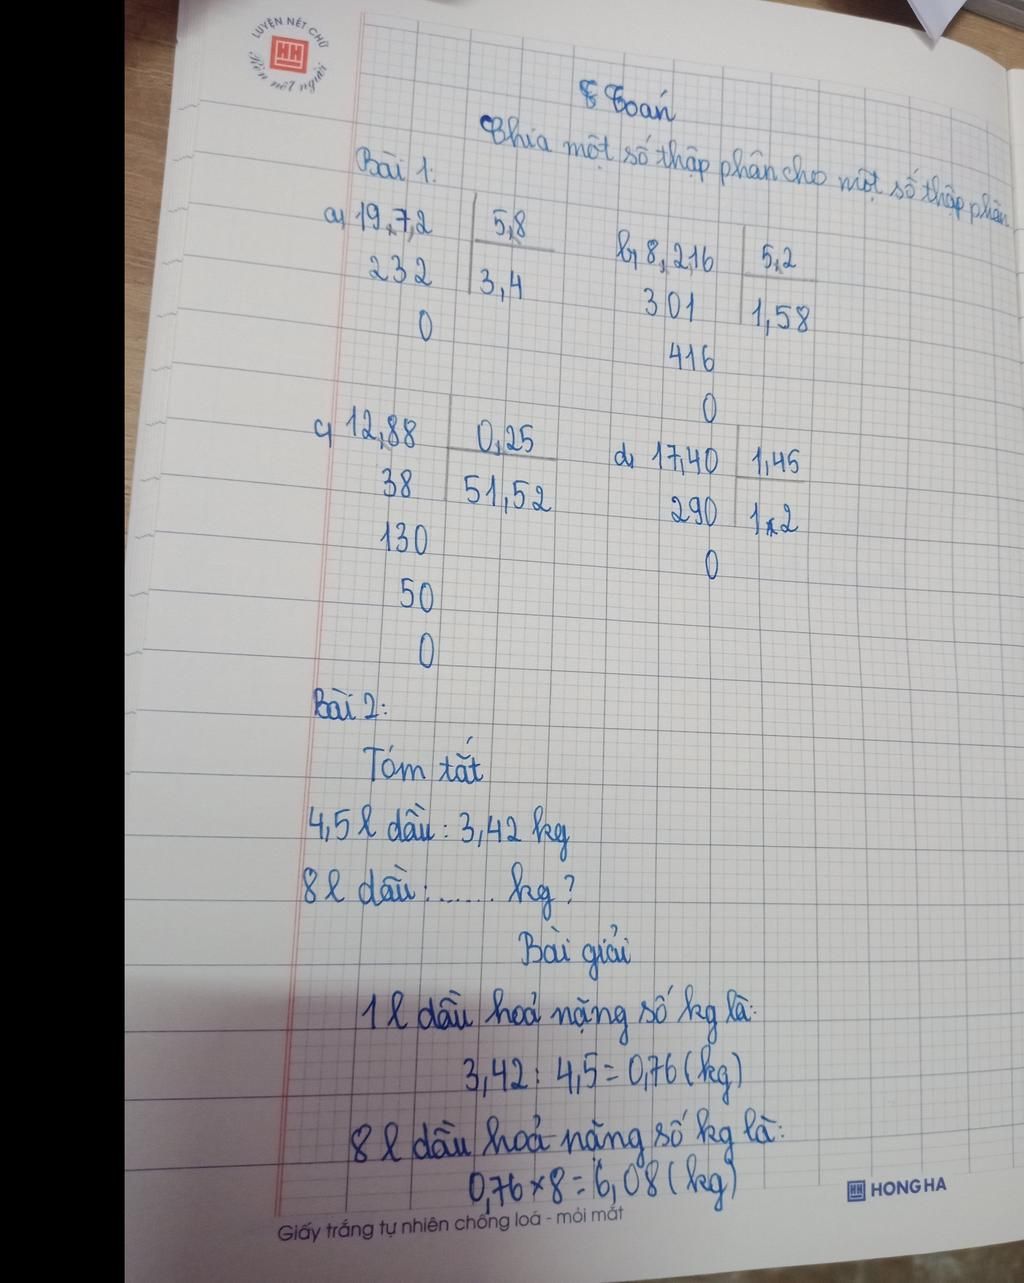 LUYỆN NÉT CHỮ
HH
Rèn nết người
Toán
Chia một số thập phân cho một số thập phân
Bài 1:
a, 19,7,2 5,8
232 3,4
0
b, 8,216 5,2
301 1,58
416
0
c, 12,88 0,25
38 51,52
130
50
0
d, 17,40 1,45
290 1 2
0
Bài 2:
Tóm tắt
4,5 l dầu: 3,42 kg
8 l dầu: ...... kg?
Bài giải
1 l dầu hoả nặng số kg là:
3,42 : 4,5 = 0,76 (kg)
8 l dầu hoả nặng số kg là:
0,76 x 8 = 6,08 (kg)
HH HONG HA
Giấy trắng tự nhiên chống loá - mỏi mắt